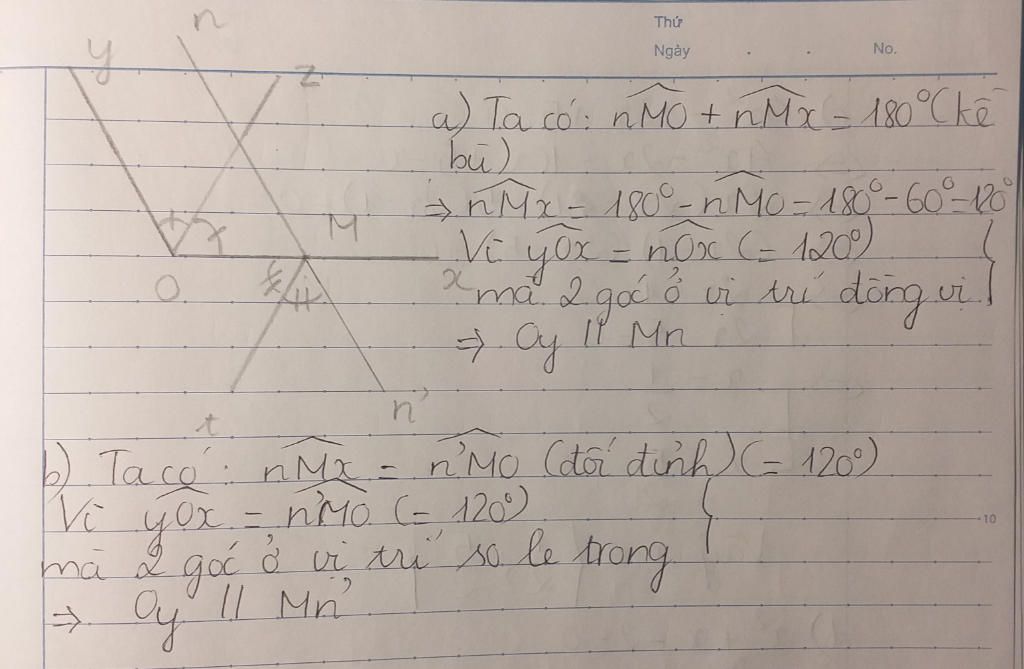 Thứ
Ngày . . No.
n
y
z
a) Ta có: nMO + nMx = 180° (kề
bù)
⇒ nMx = 180° - nMO = 180° - 60° = 120°
M
Vì yOx = nOx (= 120°)
O
x
mà 2 góc ở vị trí đồng vị
⇒ Oy // Mn
t
n'
b) Ta có: nMx = n'MO (đối đỉnh) (= 120°)
Vì yOx = n'MO (= 120°)
10
mà 2 góc ở vị trí so le trong
⇒ Oy // Mn'